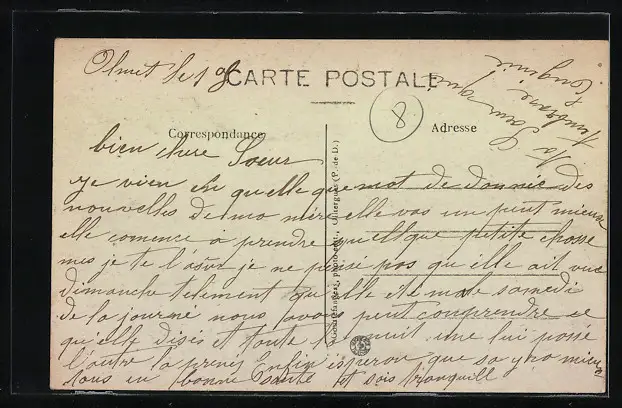 Olmet le 198
CARTE POSTALE
8
Correspondance
Adresse
bien chere Soeur
je vien en quelle que mot de donnée des
nouvelles de mo mère elle vas un peut mieuse
elle comence a prendre quelque petite chosse
mes je te l'asur je ne pensé pas qu'elle ait vue
dimanche telement qu'elle été male samedi
de la journé nous avons peut comprendre ce
qu'elle disés et toute nuit une lui posse
l'autre la prenés Enfin esperon que sa yra mieux
tous en bonne santé et sois tranquille
Ta Soeur que
t'embrasse
Eugenie
phot-édit., Vic-s-Cère (P.-de-D.)